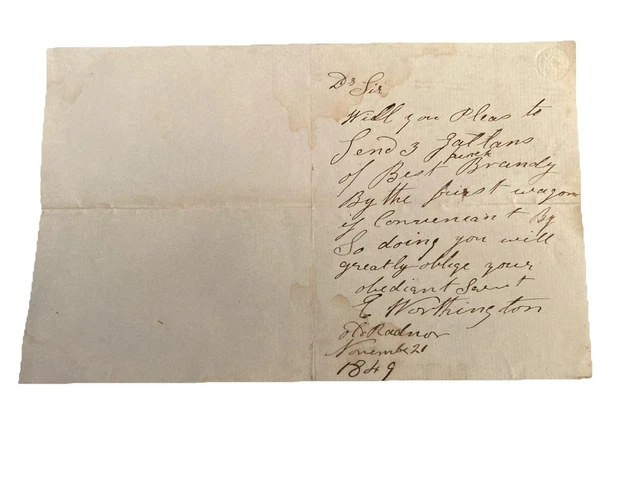 Dr Sir
Will you Pleas to
Send 3 gallans
french
of Best Brandy
By the first wagon
if Conveniant By
So doing you will
greatly oblige your
obediant Servt
E Worthington
Radnor
November 21
1849